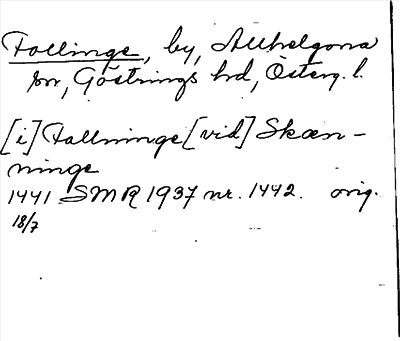 Follinge, by, Allhelgona
sn, Göstrings hd, Österg. l.
[i] Fallninge [vid] Skæn-
ninge
1441 SMR 1937 nr. 1442. orig.
18/7